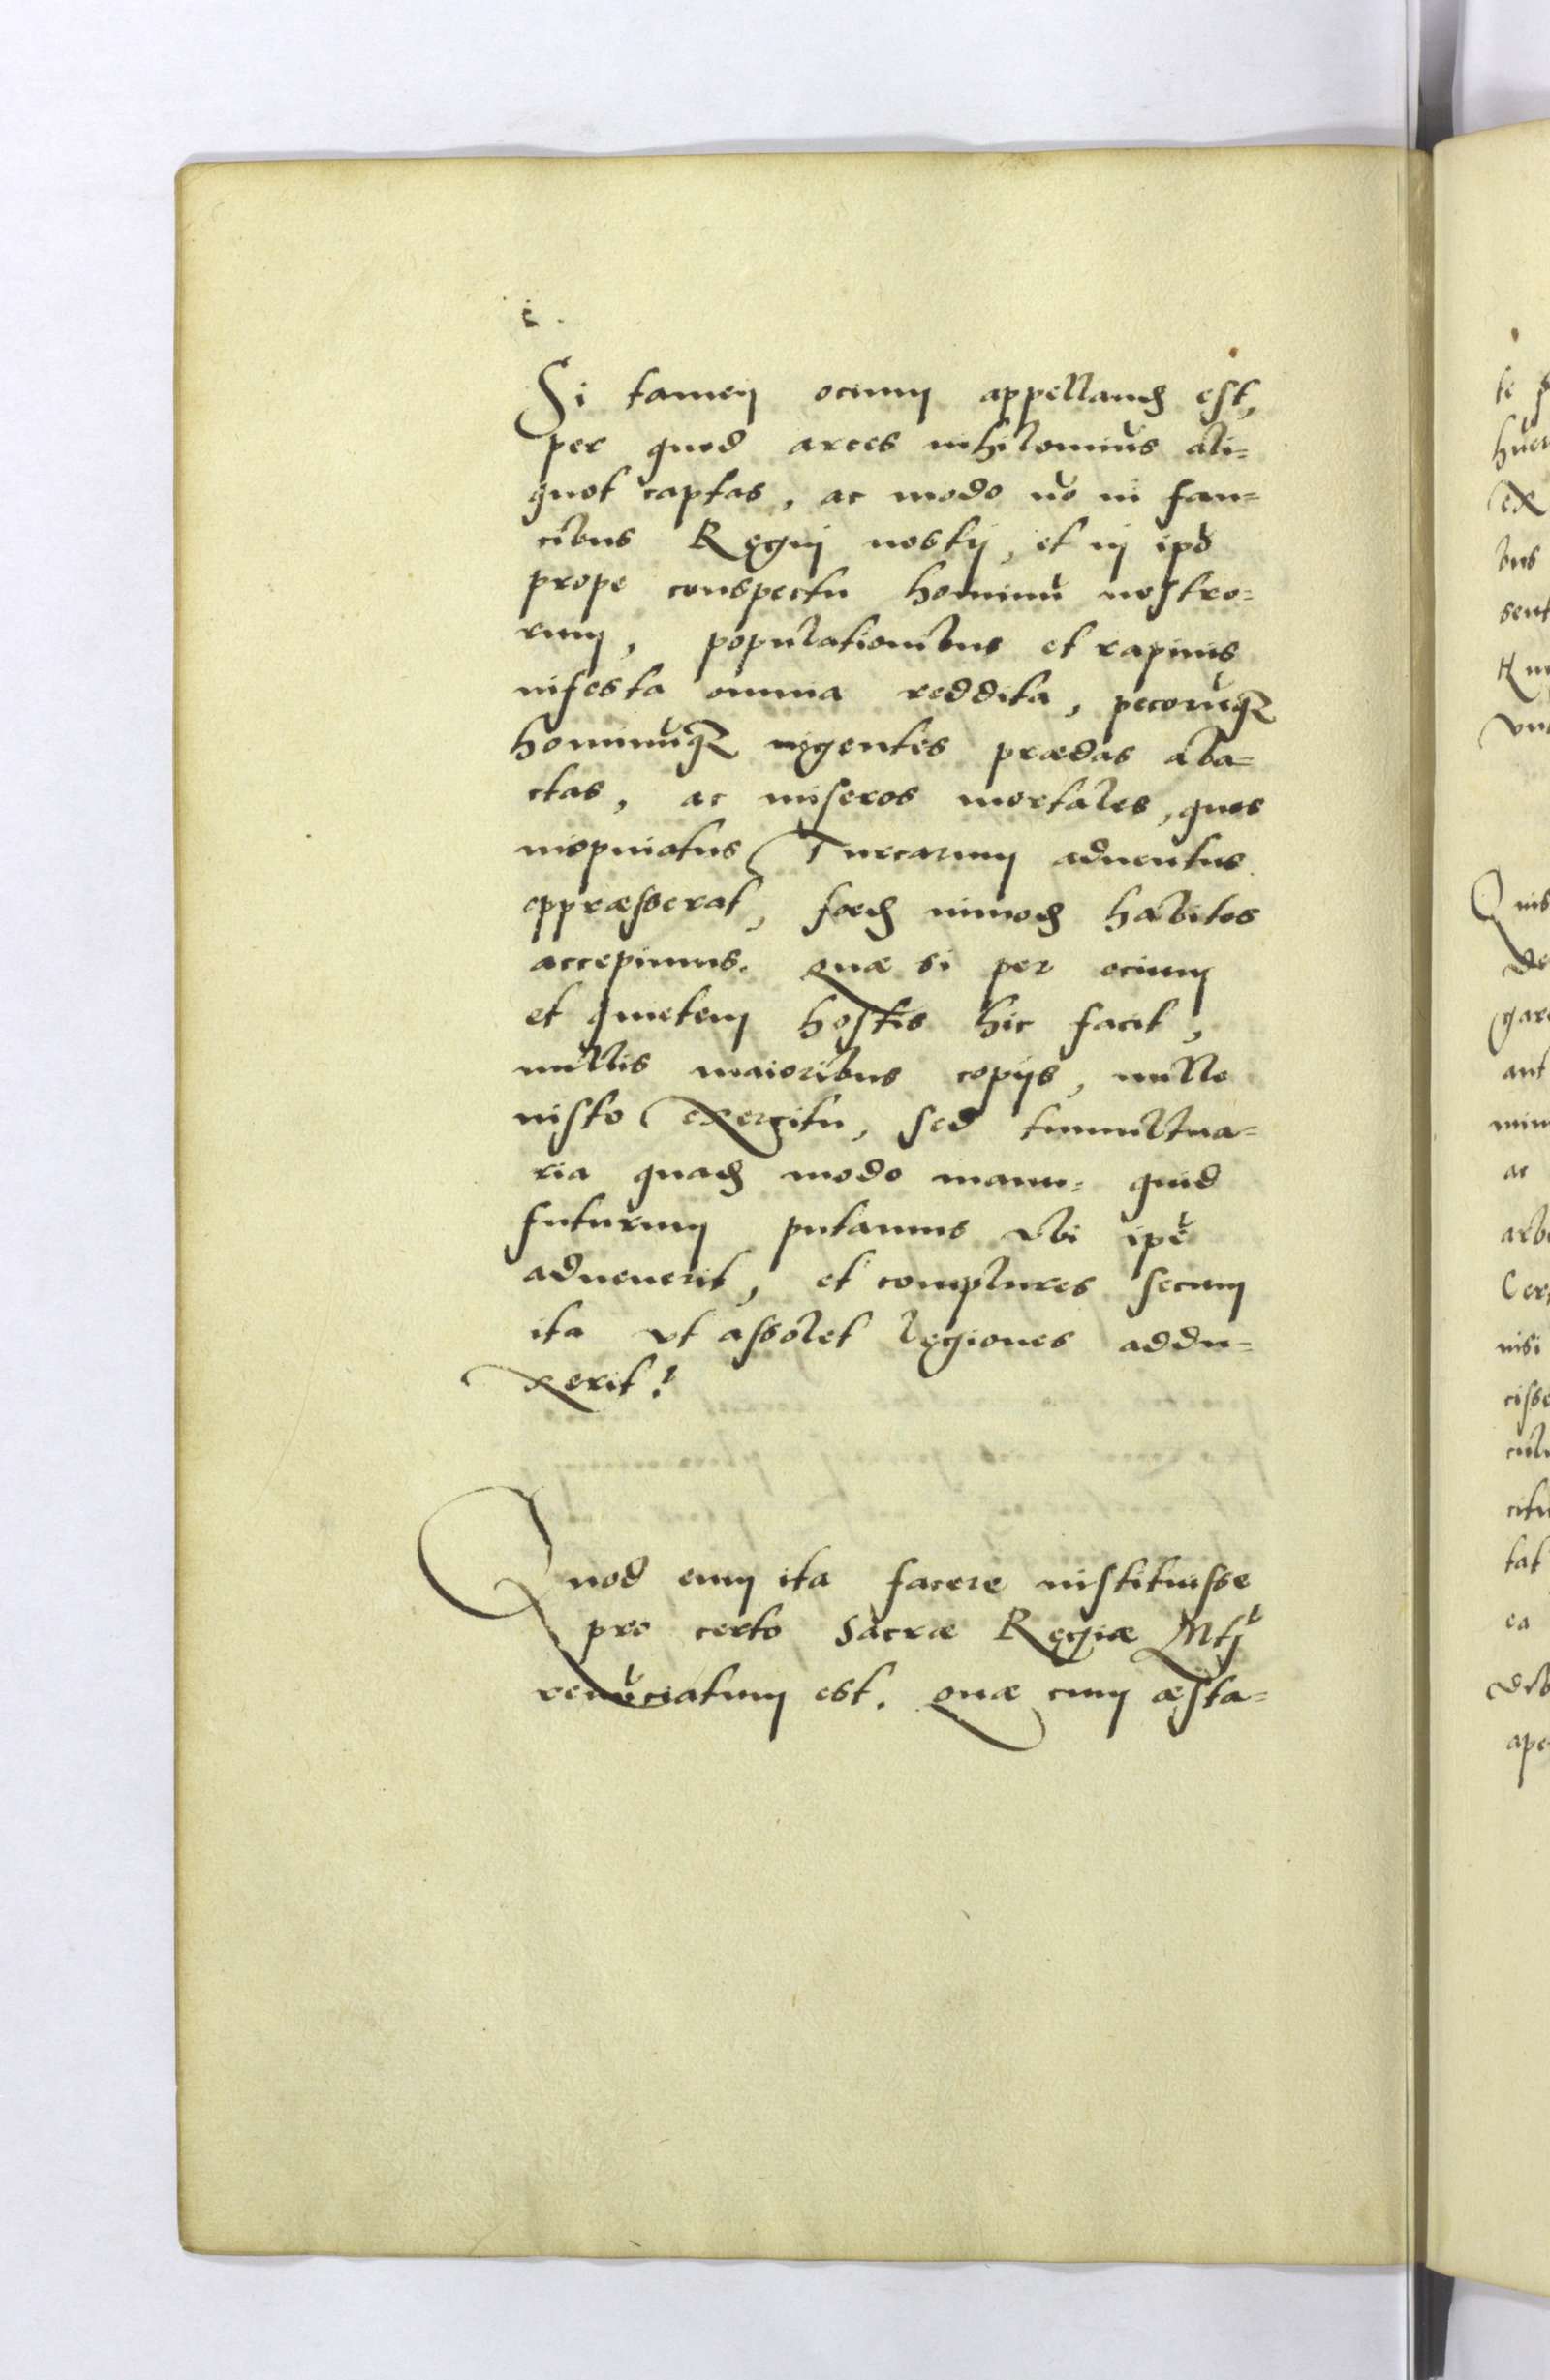 Si tamen ocium appellandũ est,
per quod arces nihilominus ali=
quot captas, ac modo uo in fau=
cibus Regni nostri, et in ipõ
prope conspectu hominũ nostro=
rum, populationibus et rapinis
infesta omnia reddita, pecorũq3
hominũq3 ingentes prædas aba=
ctas, ac miseros mortales, quos
inopinatus Turcarum aduentus
oppræsserat, foedũ inmodũ habitos
accepimus. Quæ si per ocium
et quietem hostis hic facit,
nullis maioribus copijs, nullo
iusto exercitu, sed tumultua=
ria quadã modo manu: quid
futurum putamus vbi ipẽ
aduenerit, et complures secum
ita vt assolet legiones addu=
xerit?
Quod eum ita facere instituisse
pro certo Sacræ Regiæ Mtĩ
renũciatum est. Quæ cum æsta=
te
ex
bus
sent
Quis
de
aut
ac
nisi
tat
ea